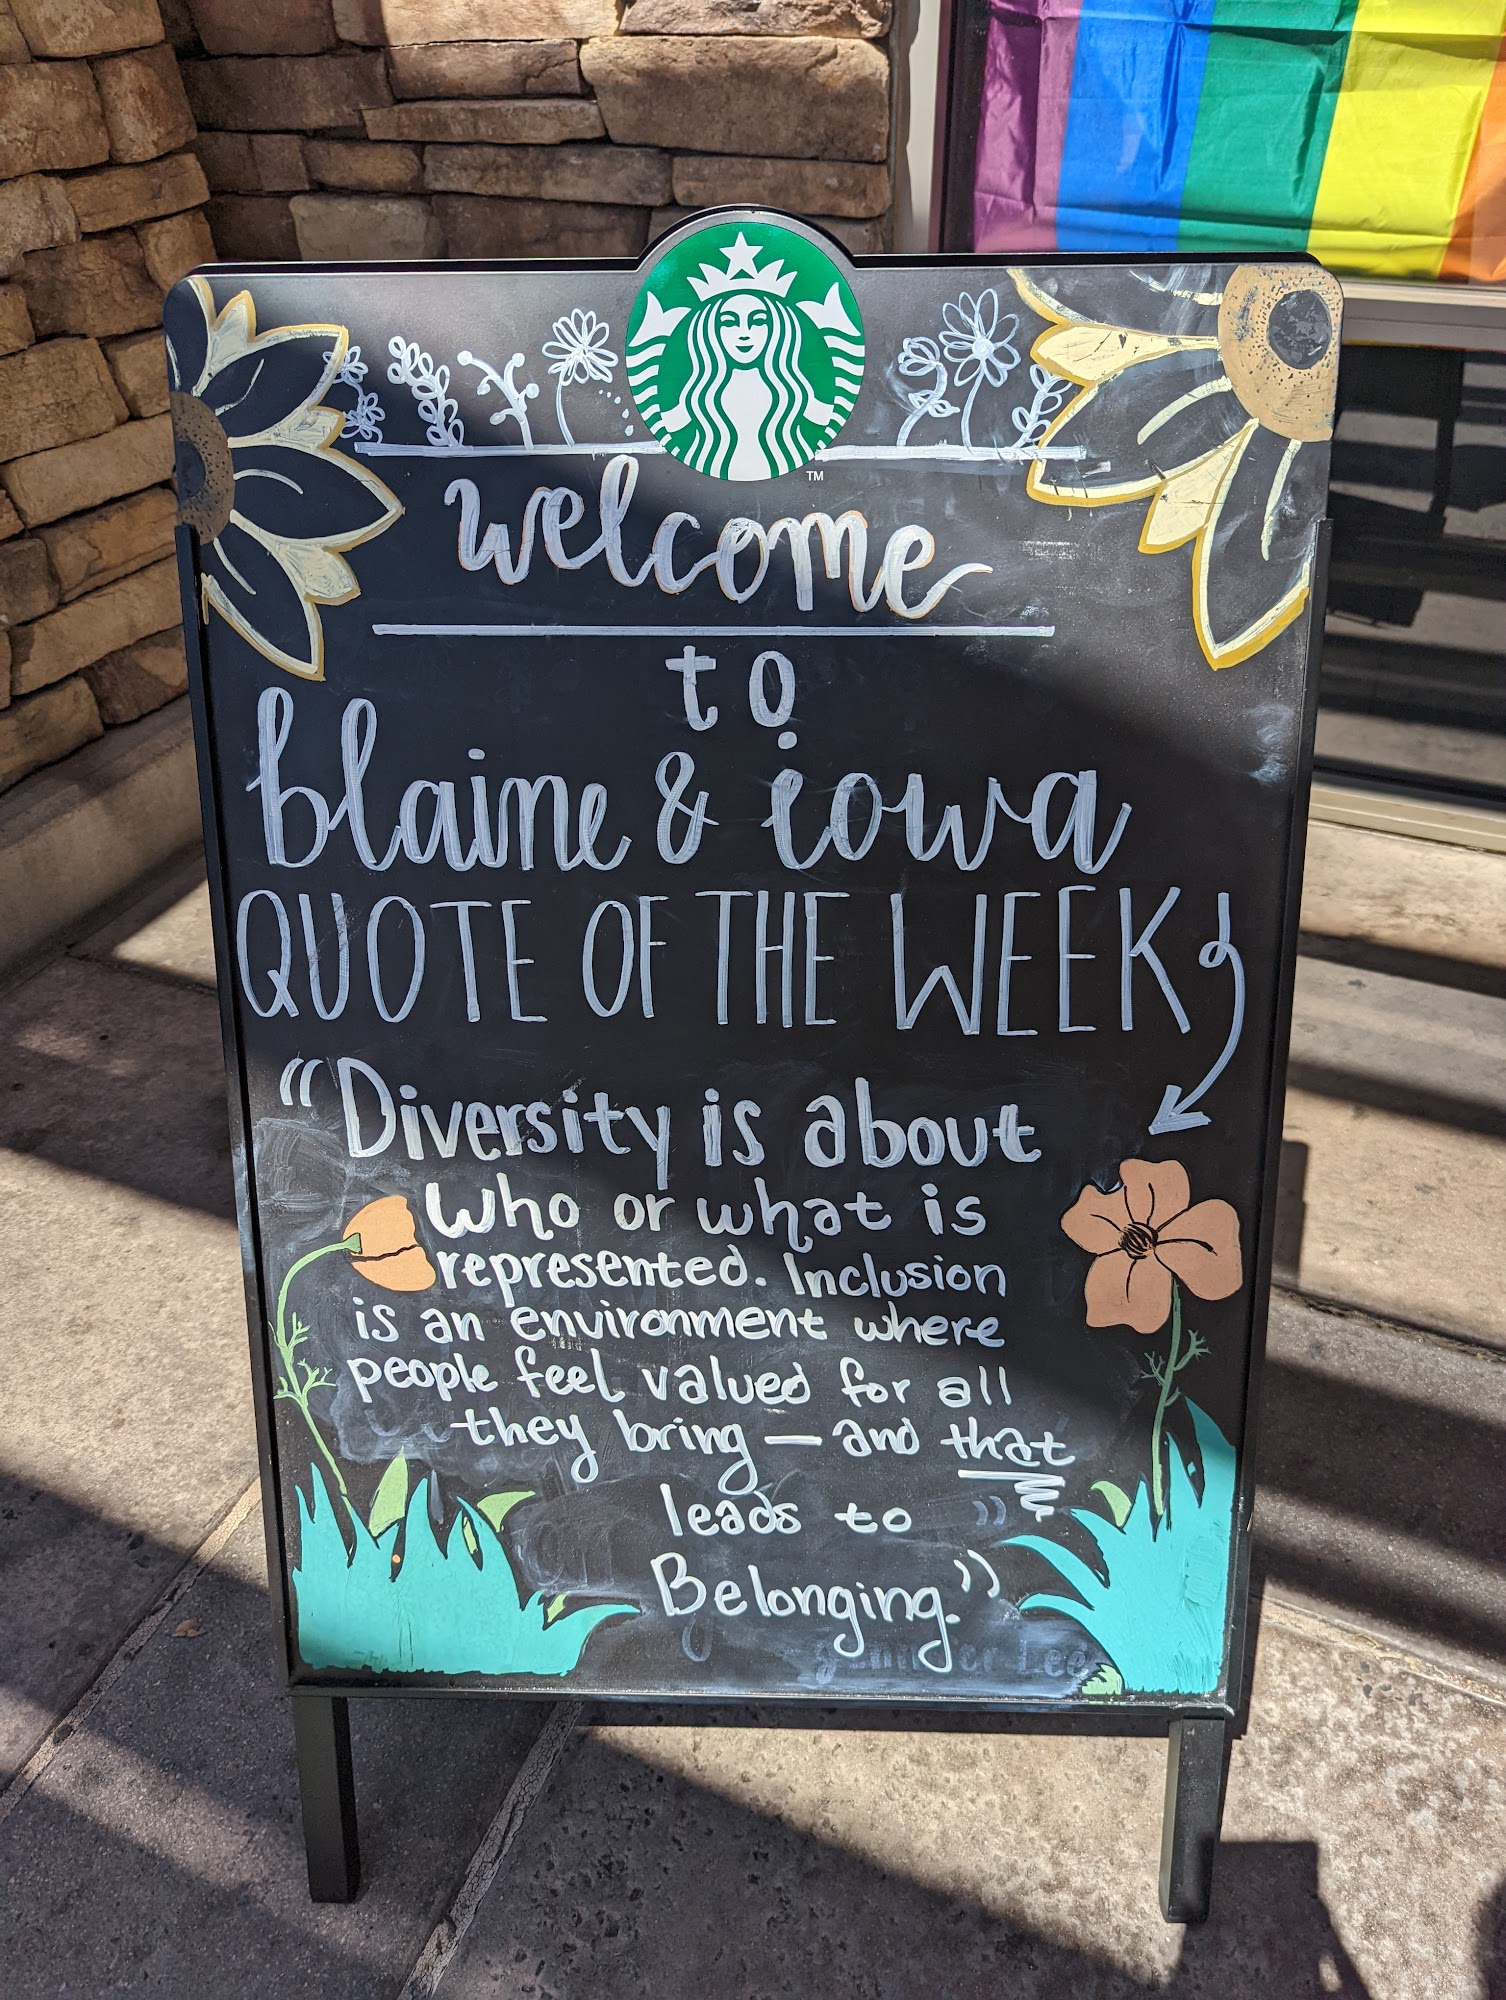 TM
welcome
to
blaine & iowa
QUOTE OF THE WEEK
"Diversity is about
who or what is
represented. Inclusion
is an environment where
people feel valued for all
they bring — and that
leads to
Belonging."